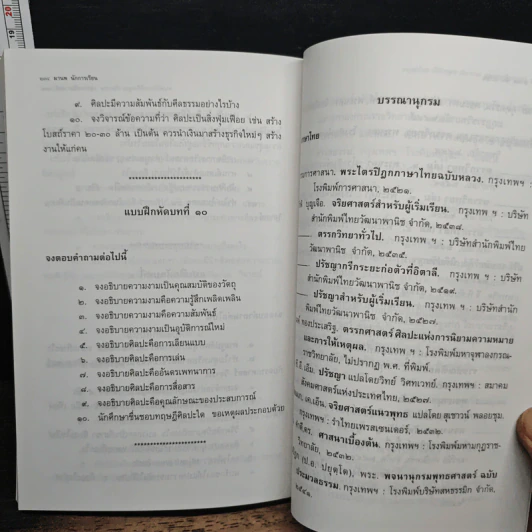 มานพ นักการเรียน
๙. ศิลปะมีความสัมพันธ์กับศีลธรรมอย่างไรบ้าง
๑๐. จงวิจารณ์ข้อความที่ว่า ศิลปะเป็นสิ่งฟุ่มเฟือย เช่น สร้าง
โบสถ์ราคา ๒๐-๓๐ ล้าน เป็นต้น ควรนำเงินมาสร้างธุรกิจใหม่ๆ สร้าง
งานให้แก่คน
********************
แบบฝึกหัดบทที่ ๑๐
จงตอบคำถามต่อไปนี้
๑. จงอธิบายความงามเป็นคุณสมบัติของวัตถุ
๒. จงอธิบายความงามคือความรู้สึกเพลิดเพลิน
๓. จงอธิบายความงามคือความสัมพันธ์
๔. จงอธิบายความงามเป็นอุบัติการณ์ใหม่
๕. จงอธิบายศิลปะคือการเลียนแบบ
๖. จงอธิบายศิลปะคือการเล่น
๗. จงอธิบายศิลปะคืออันตรเพทนาการ
๘. จงอธิบายศิลปะคือการสื่อสาร
๙. จงอธิบายศิลปะคือคุณลักษณะของประสบการณ์
๑๐. นักศึกษาชื่นชอบทฤษฎีศิลปะใด ขอเหตุผลประกอบด้วย
********************
บรรณานุกรม
าษาไทย
การศาสนา. พระไตรปิฎกภาษาไทยฉบับหลวง. กรุงเทพฯ :
โรงพิมพ์การศาสนา, ๒๕๒๑.
บุญเจือ. จริยศาสตร์สำหรับผู้เริ่มเรียน. กรุงเทพฯ : บริษัท
สำนักพิมพ์ไทยวัฒนาพานิช จำกัด, ๒๕๓๘.
____. ตรรกวิทยาทั่วไป. กรุงเทพฯ : บริษัทสำนักพิมพ์ไทย
วัฒนาพานิช จำกัด, ๒๕๓๕.
____. ปรัชญากรีกระยะก่อตัวที่อิตาลี. กรุงเทพฯ : บริษัท
สำนักพิมพ์ไทยวัฒนาพานิช จำกัด, ๒๕๑๙.
____. ปรัชญาสำหรับผู้เริ่มเรียน. กรุงเทพฯ : บริษัทสำนัก
พิมพ์ไทยวัฒนาพานิช จำกัด, ๒๕๒๗.
ทองประเสริฐ. ตรรกศาสตร์ ศิลปะแห่งการนิยามความหมาย
และการให้เหตุผล. กรุงเทพฯ : โรงพิมพ์มหาจุฬาลงกรณ-
ราชวิทยาลัย, ไม่ปรากฏ พ.ศ. ที่พิมพ์.
อี.เอ็ม. ปรัชญา แปลโดยวิทย์ วิศทเวทย์. กรุงเทพฯ : สมาคม
สังคมศาสตร์แห่งประเทศไทย, ๒๕๑๔.
เค.เอ็น. จริยศาสตร์แนวพุทธ แปลโดย สุเชาวน์ พลอยชุม.
กรุงเทพฯ : ร่ำไทยเพรสเซนเตอร์, ๒๕๓๒.
ศาสนาเบื้องต้น. กรุงเทพฯ : โรงพิมพ์มหามกุฏราช-
วิทยาลัย, ๒๕๓๒.
(ป.อ. ปยุตฺโต), พระ. พจนานุกรมพุทธศาสตร์ ฉบับ
ประมวลธรรม. กรุงเทพฯ : โรงพิมพ์บริษัทสหธรรมิก จำกัด,
๒๕๔๑.